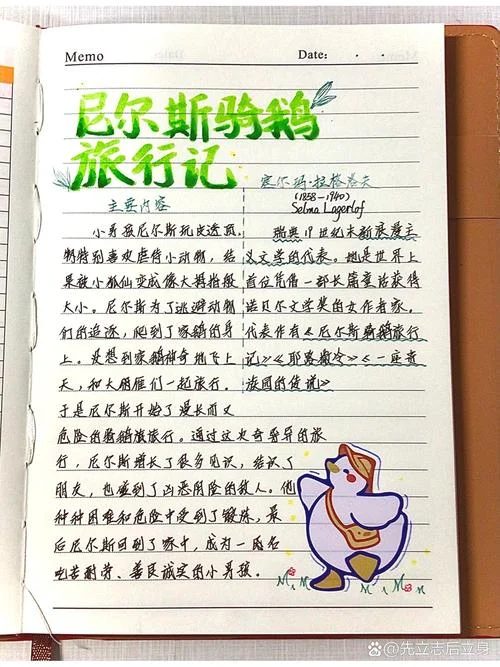 Memo
Date: . .
尼尔斯骑鹅
旅行记
主要内容
小男孩尼尔斯玩皮透顶,
特别喜欢虐待小动物,结
果被小狐仙变成像大拇指般
大小。尼尔斯为了逃避动物
们的追逐,爬到了家鹅的身
上。没想到家鹅神奇地飞上
天,和大雁们一起旅行。
于是尼尔斯开始了漫长而又
危险的骑鹅旅行。通过这次奇异的旅
行,尼尔斯增长了很多见识,结识了
朋友,也碰到了凶恶阴险的敌人。他
种种困难和危险中受到了锻炼,最
后尼尔斯回到了家中,成为一名
吃苦耐劳、善良诚实的小男孩。
塞尔玛·拉格洛夫
(1858-1940)
Selma Lagerlof
瑞典19世纪末新浪漫主
义文学的代表。她是世界上
首位凭借一部长篇童话获得
诺贝尔文学奖的女作者家。
代表作有《尼尔斯骑鹅旅行
记》《耶路撒冷》《一座
庄园的传说》
Bai百科@先立志后立身